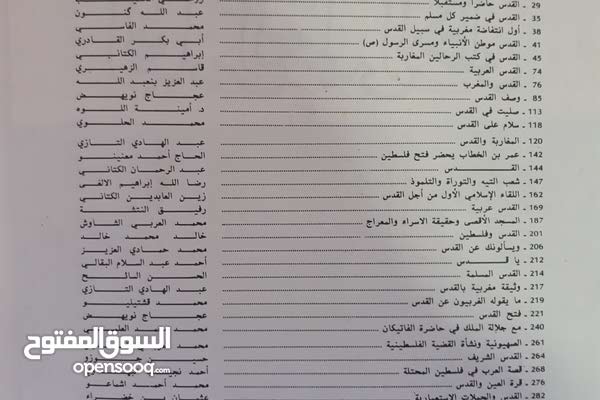 29 ـ القدس حاضرا ومستقبلا
35 ـ القدس في ضمير كل مسلم ........ عبد الله گنون
38 ـ أول انتفاضة مغربية في سبيل القدس ........ محمد الفاسي
41 ـ القدس موطن الأنبياء ومسرى الرسول (ص) ........ أبي بكر القادري
45 ـ القدس في كتب الرحالين المغاربة ........ إبراهيم الكتاني
74 ـ القدس العربية ........ قاسم الزهيري
76 ـ القدس والمغرب ........ عبد العزيز بنعبد الله
85 ـ وصف القدس ........ عجاج نويهض
113 ـ صليت في القدس ........ د. أمينة اللوه
118 ـ سلام على القدس ........ محمد الحلوي
120 ـ المغاربة والقدس ........ عبد الهادي التازي
142 ـ عمر بن الخطاب يحضر فتح فلسطين ........ الحاج أحمد معنينو
144 ـ القـدس ........ عبد الرحمان الكتاني
147 ـ شعب التيه والتوراة والتلموذ ........ رضا الله إبراهيم الالغي
162 ـ اللقاء الإسلامي الأول من أجل القدس ........ زين العابدين الكتاني
169 ـ القدس عربية ........ رفيق النتشة
187 ـ المسجد الأقصى وحقيقة الاسراء والمعراج ........ محمد العربي الشاوش
201 ـ القدس وفلسطين ........ خالد محمد خالد
206 ـ ويسألونك عن القدس ........ محمد حمادي العزيز
212 ـ يا قـدس ........ أحمد عبد السلام البقالي
214 ـ القدس المسلمة ........ الحسن السائح
217 ـ وثيقة مغربية بالقدس ........ عبد الهادي التازي
219 ـ ما يقوله الغربيون عن القدس ........ محمد قشتيليو
221 ـ فتح القدس ........ عجاج نويهض
240 ـ مع جلالة الملك في حاضرة الفاتيكان ........ محمد
261 ـ الصهيونية ونشأة القضية الفلسطينية ........ محمد
264 ـ القدس الشريف
268 ـ قصة العرب في فلسطين المحتلة ........ أحمد
276 ـ قرة العين والقدس ........ محمد أحمد اشماعو
282 ـ القدس والحملات الاستعمارية ........ عثمان بن خضراء
السوق المفتوح
opensooq.com